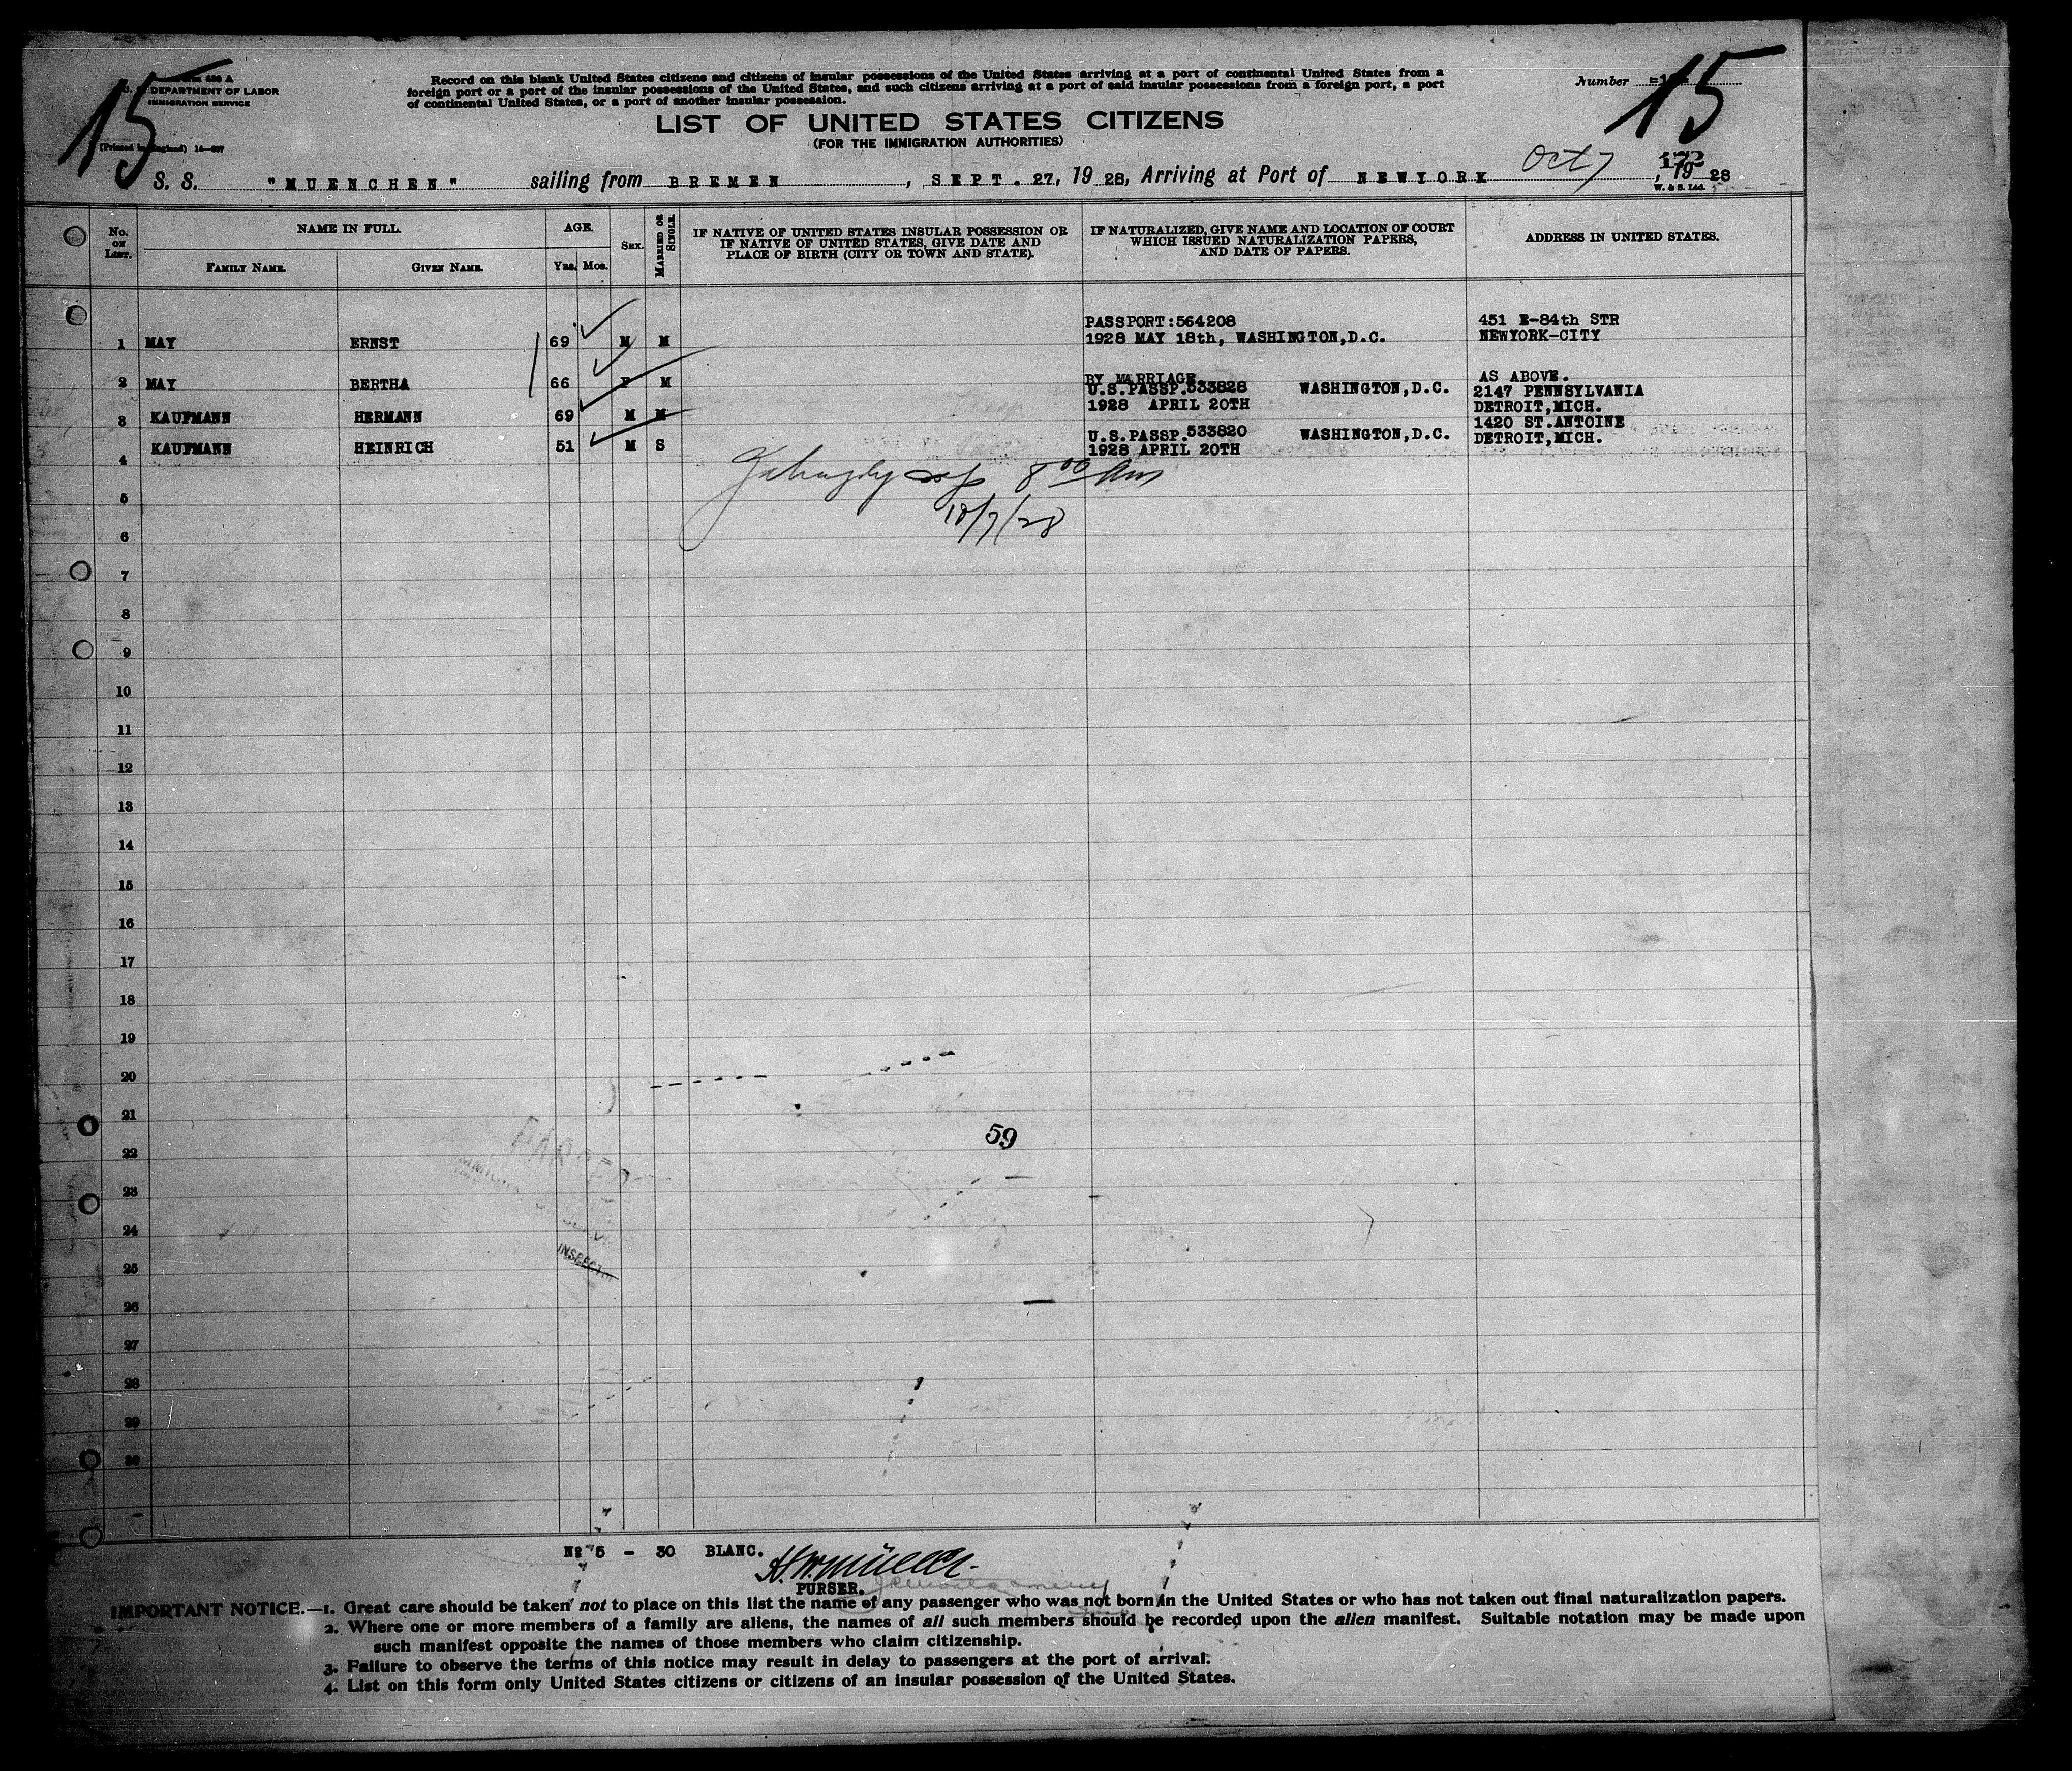 15
Form 686 A
DEPARTMENT OF LABOR
IMMIGRATION SERVICE
(Printed in England) 14—607
Record on this blank United States citizens and citizens of insular possessions of the United States arriving at a port of continental United States from a
foreign port or a port of the insular possessions of the United States, and such citizens arriving at a port of said insular possessions from a foreign port, a port
of continental United States, or a port of another insular possession.
LIST OF UNITED STATES CITIZENS
(FOR THE IMMIGRATION AUTHORITIES)
Number
15
172
S. S. "MUENCHEN" sailing from BREMEN, SEPT. 27, 19 28, Arriving at Port of NEWYORK Oct 7, 19 28
W. & S. Ltd.
No. ON LIST.
NAME IN FULL.
FAMILY NAME. GIVEN NAME.
AGE.
Yrs. Mos.
SEX.
MARRIED OR SINGLE.
IF NATIVE OF UNITED STATES INSULAR POSSESSION OR
IF NATIVE OF UNITED STATES, GIVE DATE AND
PLACE OF BIRTH (CITY OR TOWN AND STATE).
IF NATURALIZED, GIVE NAME AND LOCATION OF COURT
WHICH ISSUED NATURALIZATION PAPERS,
AND DATE OF PAPERS.
ADDRESS IN UNITED STATES.
PASSPORT:564208 451 E-84th STR
1 MAY ERNST 69 M M 1928 MAY 18th, WASHINGTON,D.C. NEWYORK-CITY
2 MAY BERTHA 66 F M BY MARRIAGE AS ABOVE.
U.S.PASSP.533828 WASHINGTON,D.C. 2147 PENNSYLVANIA
3 KAUFMANN HERMANN 69 M M 1928 APRIL 20TH DETROIT,MICH.
1420 ST.ANTOINE
4 KAUFMANN HEINRICH 51 M S U.S.PASSP.533820 WASHINGTON,D.C. DETROIT,MICH.
1928 APRIL 20TH
8 00 Am
10/7/28
5
6
7
8
9
10
11
12
13
14
15
16
17
18
19
20
21
59
22
23
24
25
INSPECTOR
26
27
28
29
30
No 5 - 30 BLANC.
H. W. Müller
PURSER.
IMPORTANT NOTICE.—1. Great care should be taken not to place on this list the name of any passenger who was not born in the United States or who has not taken out final naturalization papers.
2. Where one or more members of a family are aliens, the names of all such members should be recorded upon the alien manifest. Suitable notation may be made upon
such manifest opposite the names of those members who claim citizenship.
3. Failure to observe the terms of this notice may result in delay to passengers at the port of arrival.
4. List on this form only United States citizens or citizens of an insular possession of the United States.